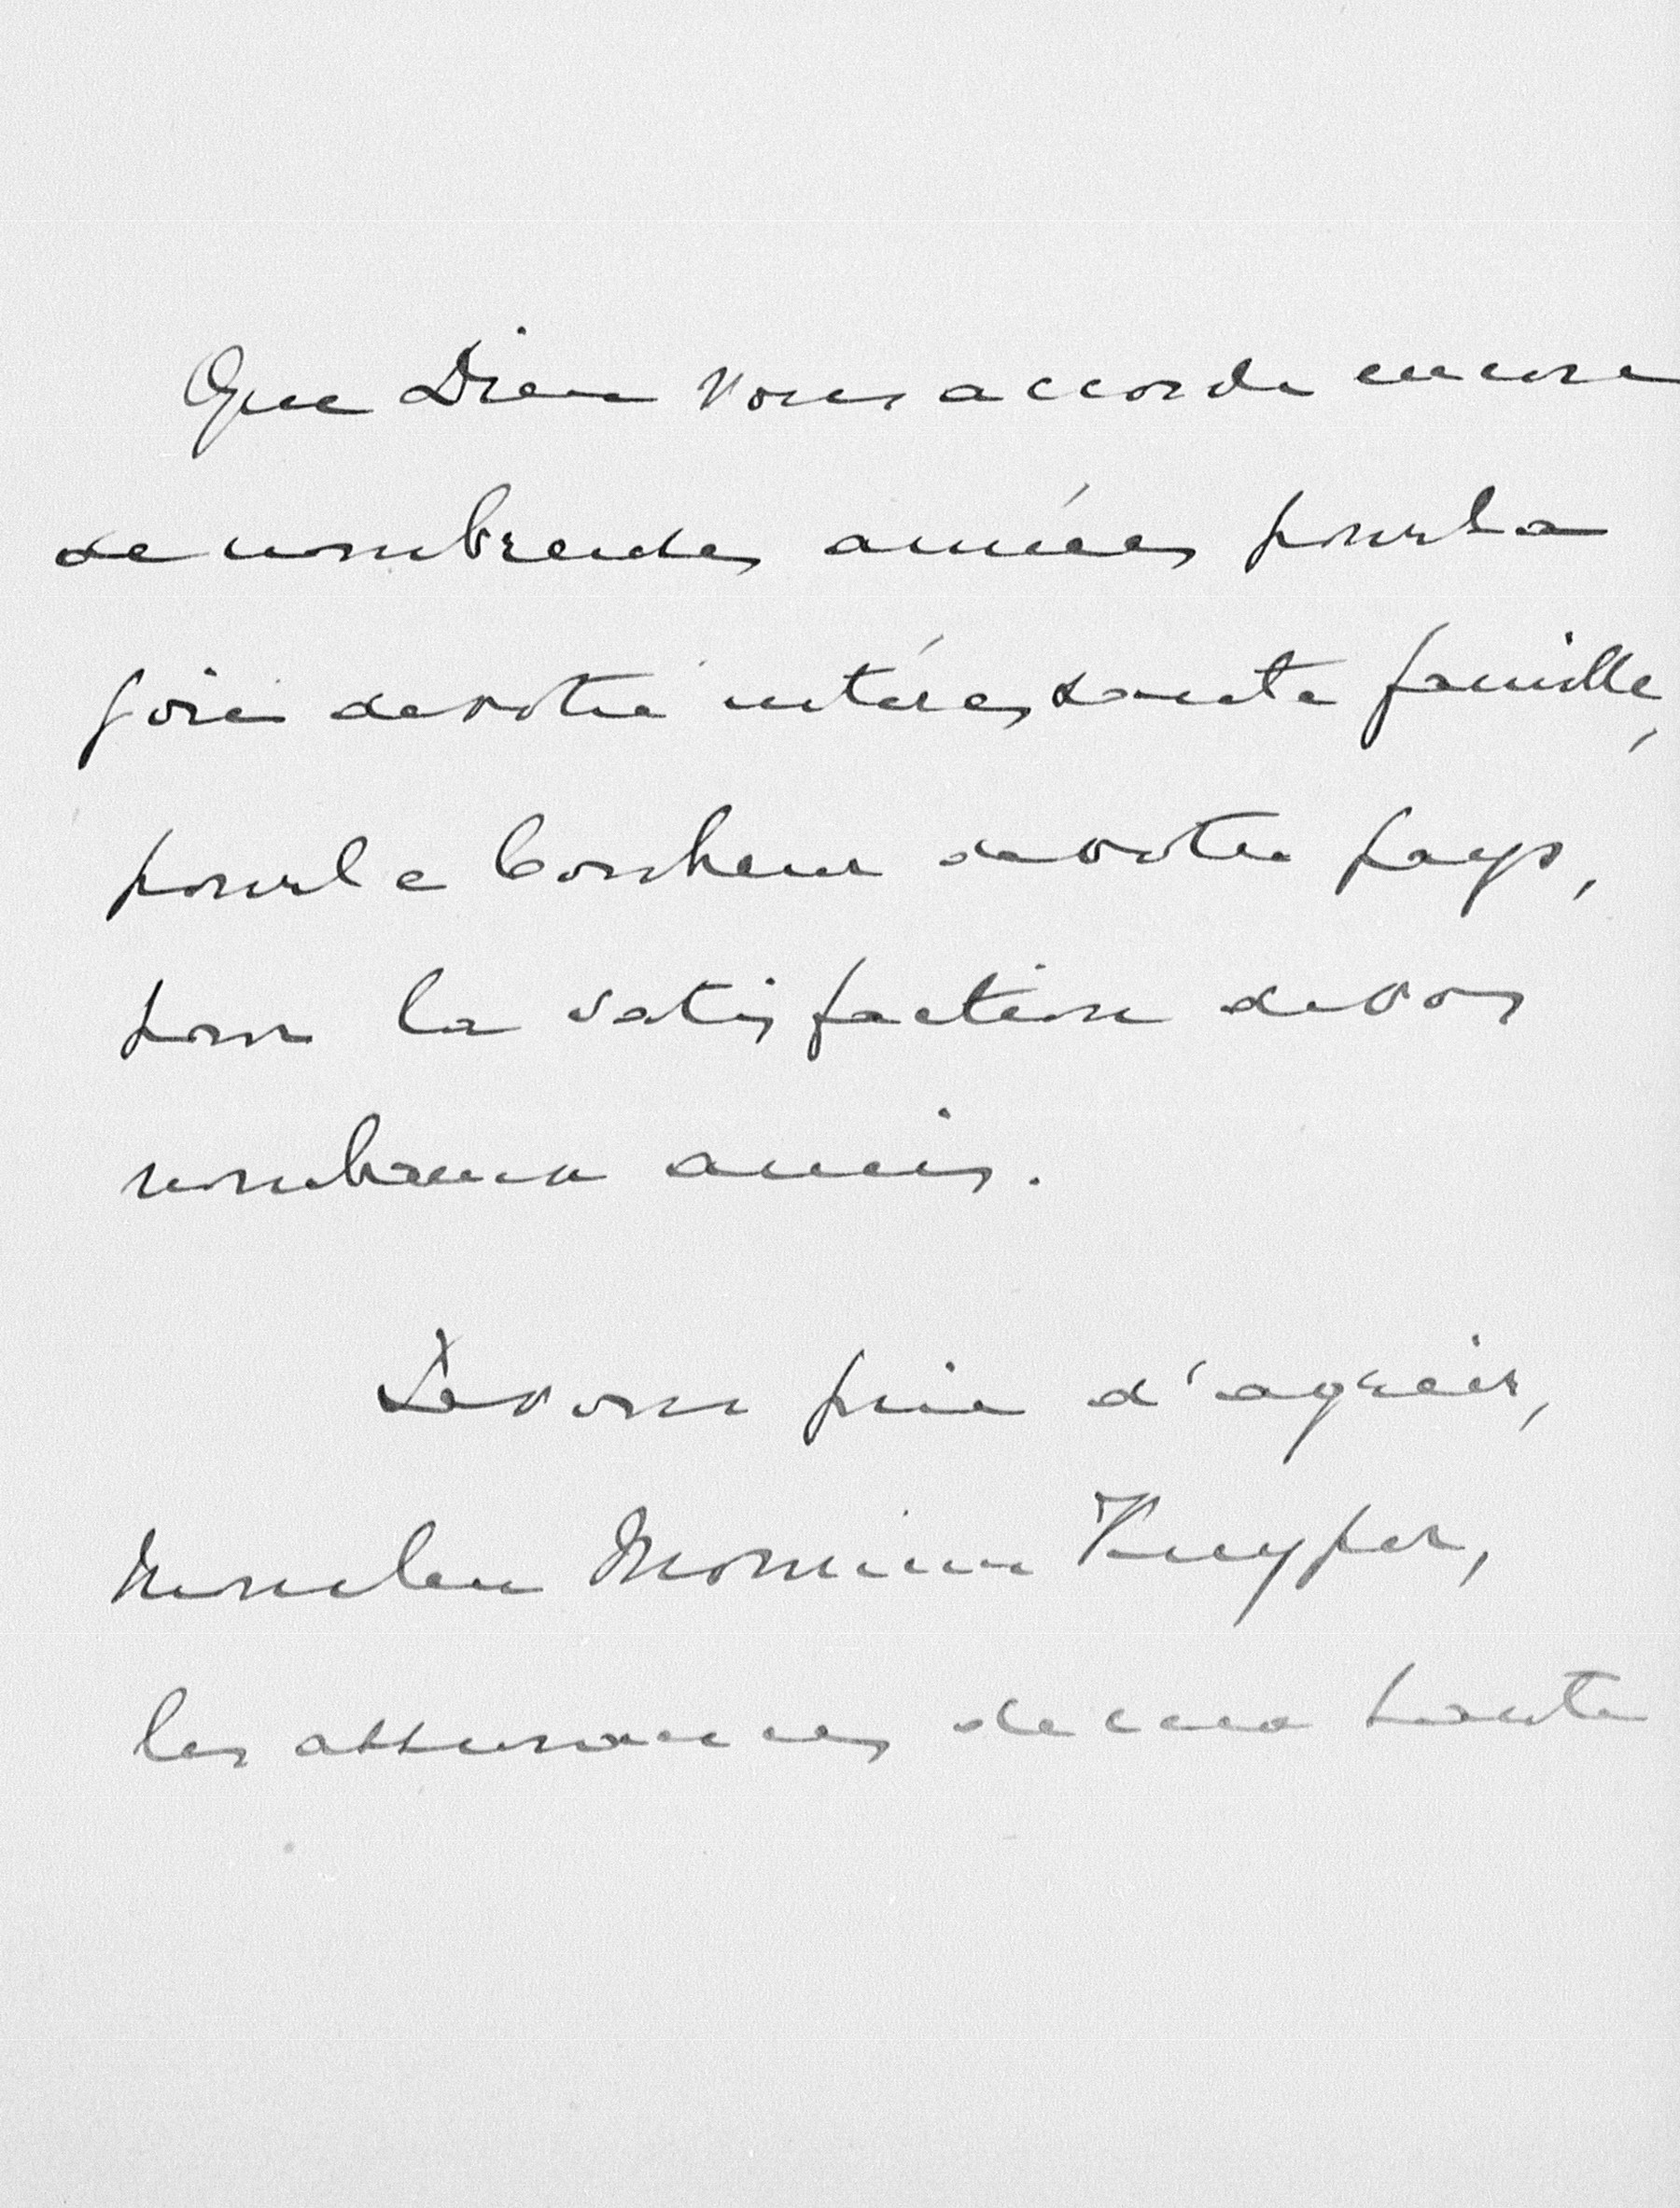 Que Dieu vous accorde encore
de nombreuses années pour la
joie de votre intéressante famille,
pour le bonheur de votre pays,
pour la satisfaction de vos
nombreux amis.
Je vous prie d'agréer,
Monsieur Kuyper,
les assurances de ma haute